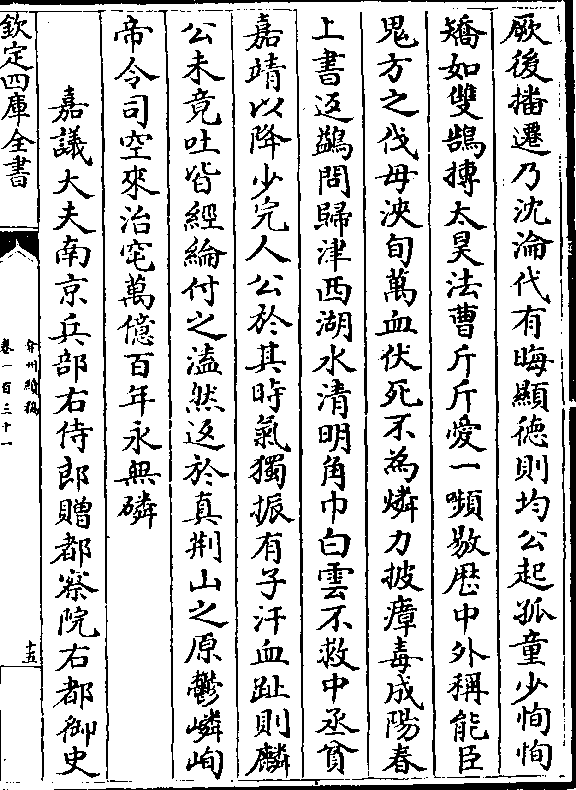 厥後播遷乃沈淪代有晦顯徳則均公起孤童少恂恂
矯如雙鵠搏太昊法曹斤斤愛一嚬敭厯中外稱能臣
鬼方之伐毋浹旬萬血伏死不為燐力披瘴毒成陽春
上書返鷁問歸津西湖水清明角巾白雲不救中丞貧
嘉靖以降少完人公於其時氣獨振有子汗血趾則麟
公未竟吐皆經綸付之溘然返於真荆山之原鬱嶙峋
帝令司空來治窀萬億百年永無磷
嘉議大夫南京兵部右侍郎贈都察院右都御史
欽定四庫全書
弇州續稿
卷一百三十一
十五